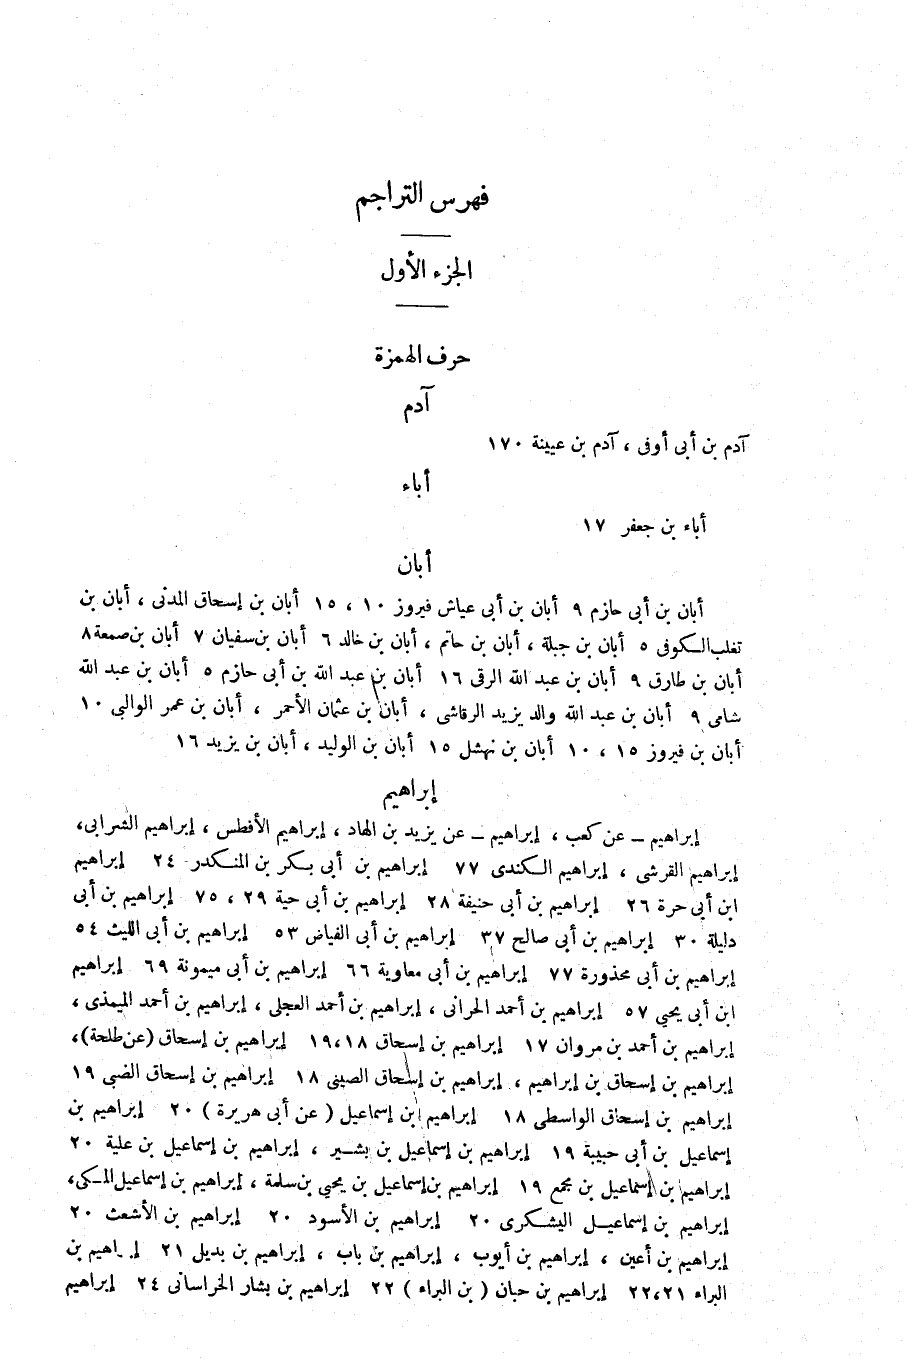 فهرس التراجم
الجزء الأول
حرف الهمزة
آدم
آدم بن أبى أوفى ، آدم بن عيينة ١٧٠
أباء
أباء بن جعفر ١٧
أبان
أبان بن أبى حازم ٩ أبان بن أبى عياش فيروز ١٠ ، ١٥ أبان بن إسحاق المدنى ، أبان بن
تغلب الكوفى ٥ أبان بن جبلة ، أبان بن حاتم ، أبان بن خالد ٦ أبان بن سفيان ٧ أبان بن صمعة ٨
أبان بن طارق ٩ أبان بن عبد الله الرقى ١٦ أبان بن عبد الله بن أبى حازم ٥ أبان بن عبد الله
شامى ٩ أبان بن عبد الله والد يزيد الرقاشى ، أبان بن عثمان الأحمر ، أبان بن عمر الوالبى ١٠
أبان بن فيروز ١٥ ، ١٠ أبان بن نهشل ١٥ أبان بن الوليد ، أبان بن يزيد ١٦
إبراهيم
إبراهيم ــ عن كعب ، إبراهيم ــ عن يزيد بن الهاد ، إبراهيم الأفطس ، إبراهيم الشرابى،
إبراهيم القرشى ، إبراهيم الكندى ٧٧ إبراهيم بن أبى بكر بن المنكدر ٢٤ إبراهيم
ابن أبى حرة ٢٦ إبراهيم بن أبى حنيفة ٢٨ إبراهيم بن أبى حية ٢٩ ، ٧٥ إبراهيم بن أبى
دليلة ٣٠ إبراهيم بن أبى صالح ٣٧ إبراهيم بن أبى الفياض ٥٣ إبراهيم بن أبى الليث ٥٤
إبراهيم بن أبى محذورة ٧٧ إبراهيم بن أبى معاوية ٦٦ إبراهيم بن أبى ميمونة ٦٩ إبراهيم
ابن أبى يحيى ٥٧ إبراهيم بن أحمد الحرانى ، إبراهيم بن أحمد العجلى ، إبراهيم بن أحمد الميمذى ،
إبراهيم بن أحمد بن مروان ١٧ إبراهيم بن إسحاق ١٨،١٩ إبراهيم بن إسحاق (عن طلحة)،
إبراهيم بن إسحاق بن إبراهيم ، إبراهيم بن إسحاق الصينى ١٨ إبراهيم بن إسحاق الضبى ١٩
إبراهيم بن إسحاق الواسطى ١٨ إبراهيم ابن إسماعيل ( عن أبى هريرة ) ٢٠ إبراهيم بن
إسماعيل بن أبى حبيبة ١٩ إبراهيم بن إسماعيل بن بشير ، إبراهيم بن إسماعيل بن علية ٢٠
إبراهيم بن إسماعيل بن مجمع ١٩ إبراهيم بن إسماعيل بن يحيى بن سلمة ، إبراهيم بن إسماعيل المكى،
إبراهيم بن إسماعيل اليشكرى ٢٠ إبراهيم بن الأسود ٢٠ إبراهيم بن الأشعث ٢٠
إبراهيم بن أعين ، إبراهيم بن أيوب ، إبراهيم بن باب ، إبراهيم بن بديل ٢١ إبراهيم بن
البراء ٢١،٢٢ إبراهيم بن حبان ( بن البراء ) ٢٢ إبراهيم بن بشار الخراسانى ٢٤ إبراهيم